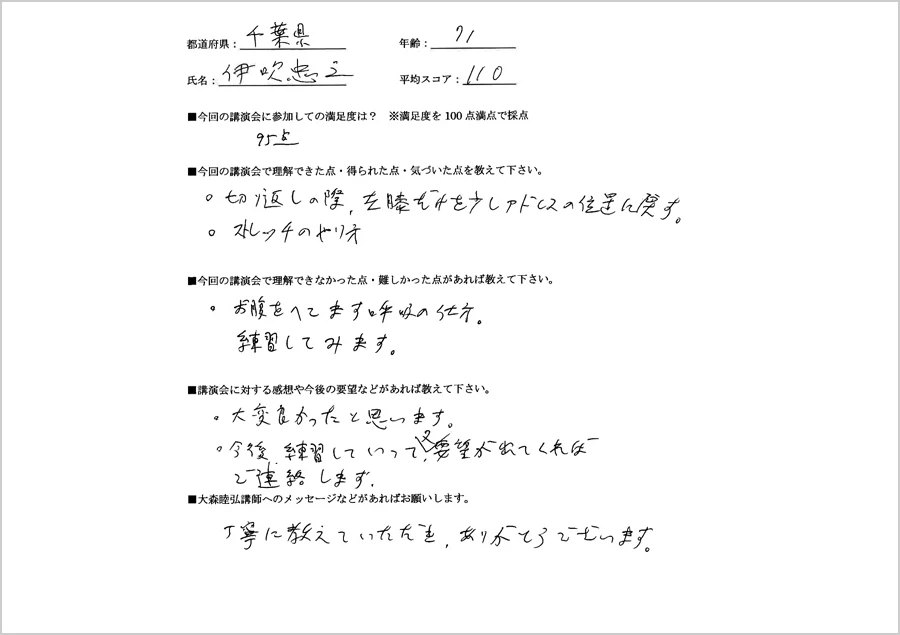 都道府県： 千葉県 年齢： 71
氏名： 伊吹忠之 平均スコア： 110
■今回の講演会に参加しての満足度は？ ※満足度を100点満点で採点
95点
■今回の講演会で理解できた点・得られた点・気づいた点を教えて下さい。
○ 切り返しの際、左膝だけを少しアドレスの位置に戻す。
○ ストレッチのやり方
■今回の講演会で理解できなかった点・難しかった点があれば教えて下さい。
○ お腹をへこます呼吸の仕方。
練習してみます。
■講演会に対する感想や今後の要望などがあれば教えて下さい。
・大変良かったと思います。
・今後、練習していって、又要望が出てくれば
ご連絡します。
■大森睦弘講師へのメッセージなどがあればお願いします。
丁寧に教えていただき、ありがとうございます。